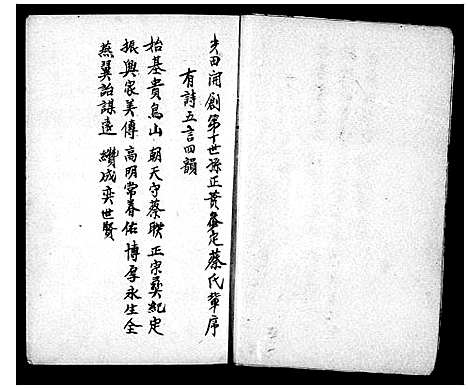 夫田開創第十世孫正黃鑫定蔡氏輩序
有詩五言四韻
抬基貴烏山 朝天守蔡联 正宗奠紀定
振興家美傳 高明常春佑 博孕永生全
燕翼詒謀遠 纘成奕世賢